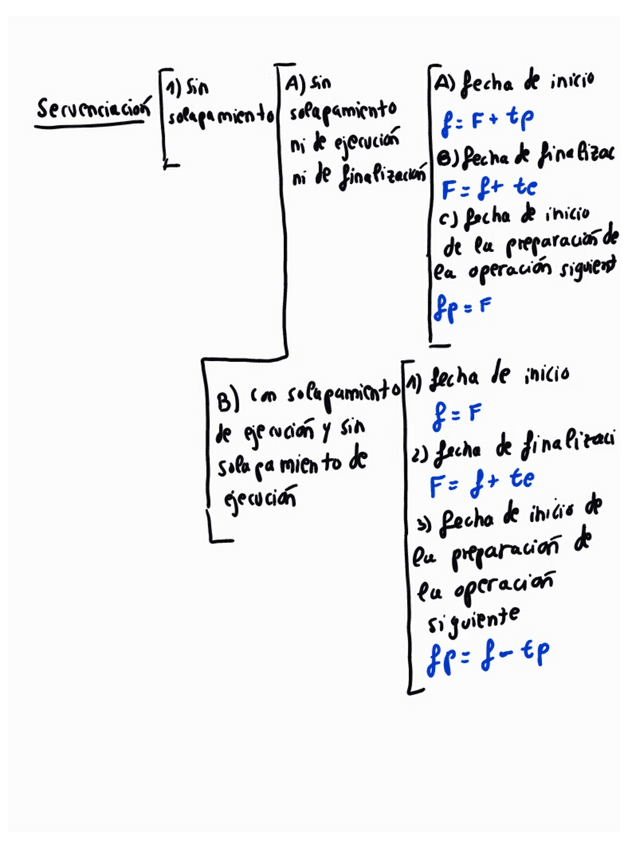 Secuenciación
1) Sin
solapamiento
A) Sin
solapamiento
ni de ejecución
ni de finalización
A) fecha de inicio
f = F + tp
B) fecha de finalizac
F = f + te
C) fecha de inicio
de la preparación de
la operación siguient
fp = F
B) con solapamiento
de ejecución y sin
solapamiento de
ejecución
1) fecha de inicio
f = F
2) fecha de finalizaci
F = f + te
3) fecha de inicio de
la preparación de
la operación
siguiente
fp = f - tp